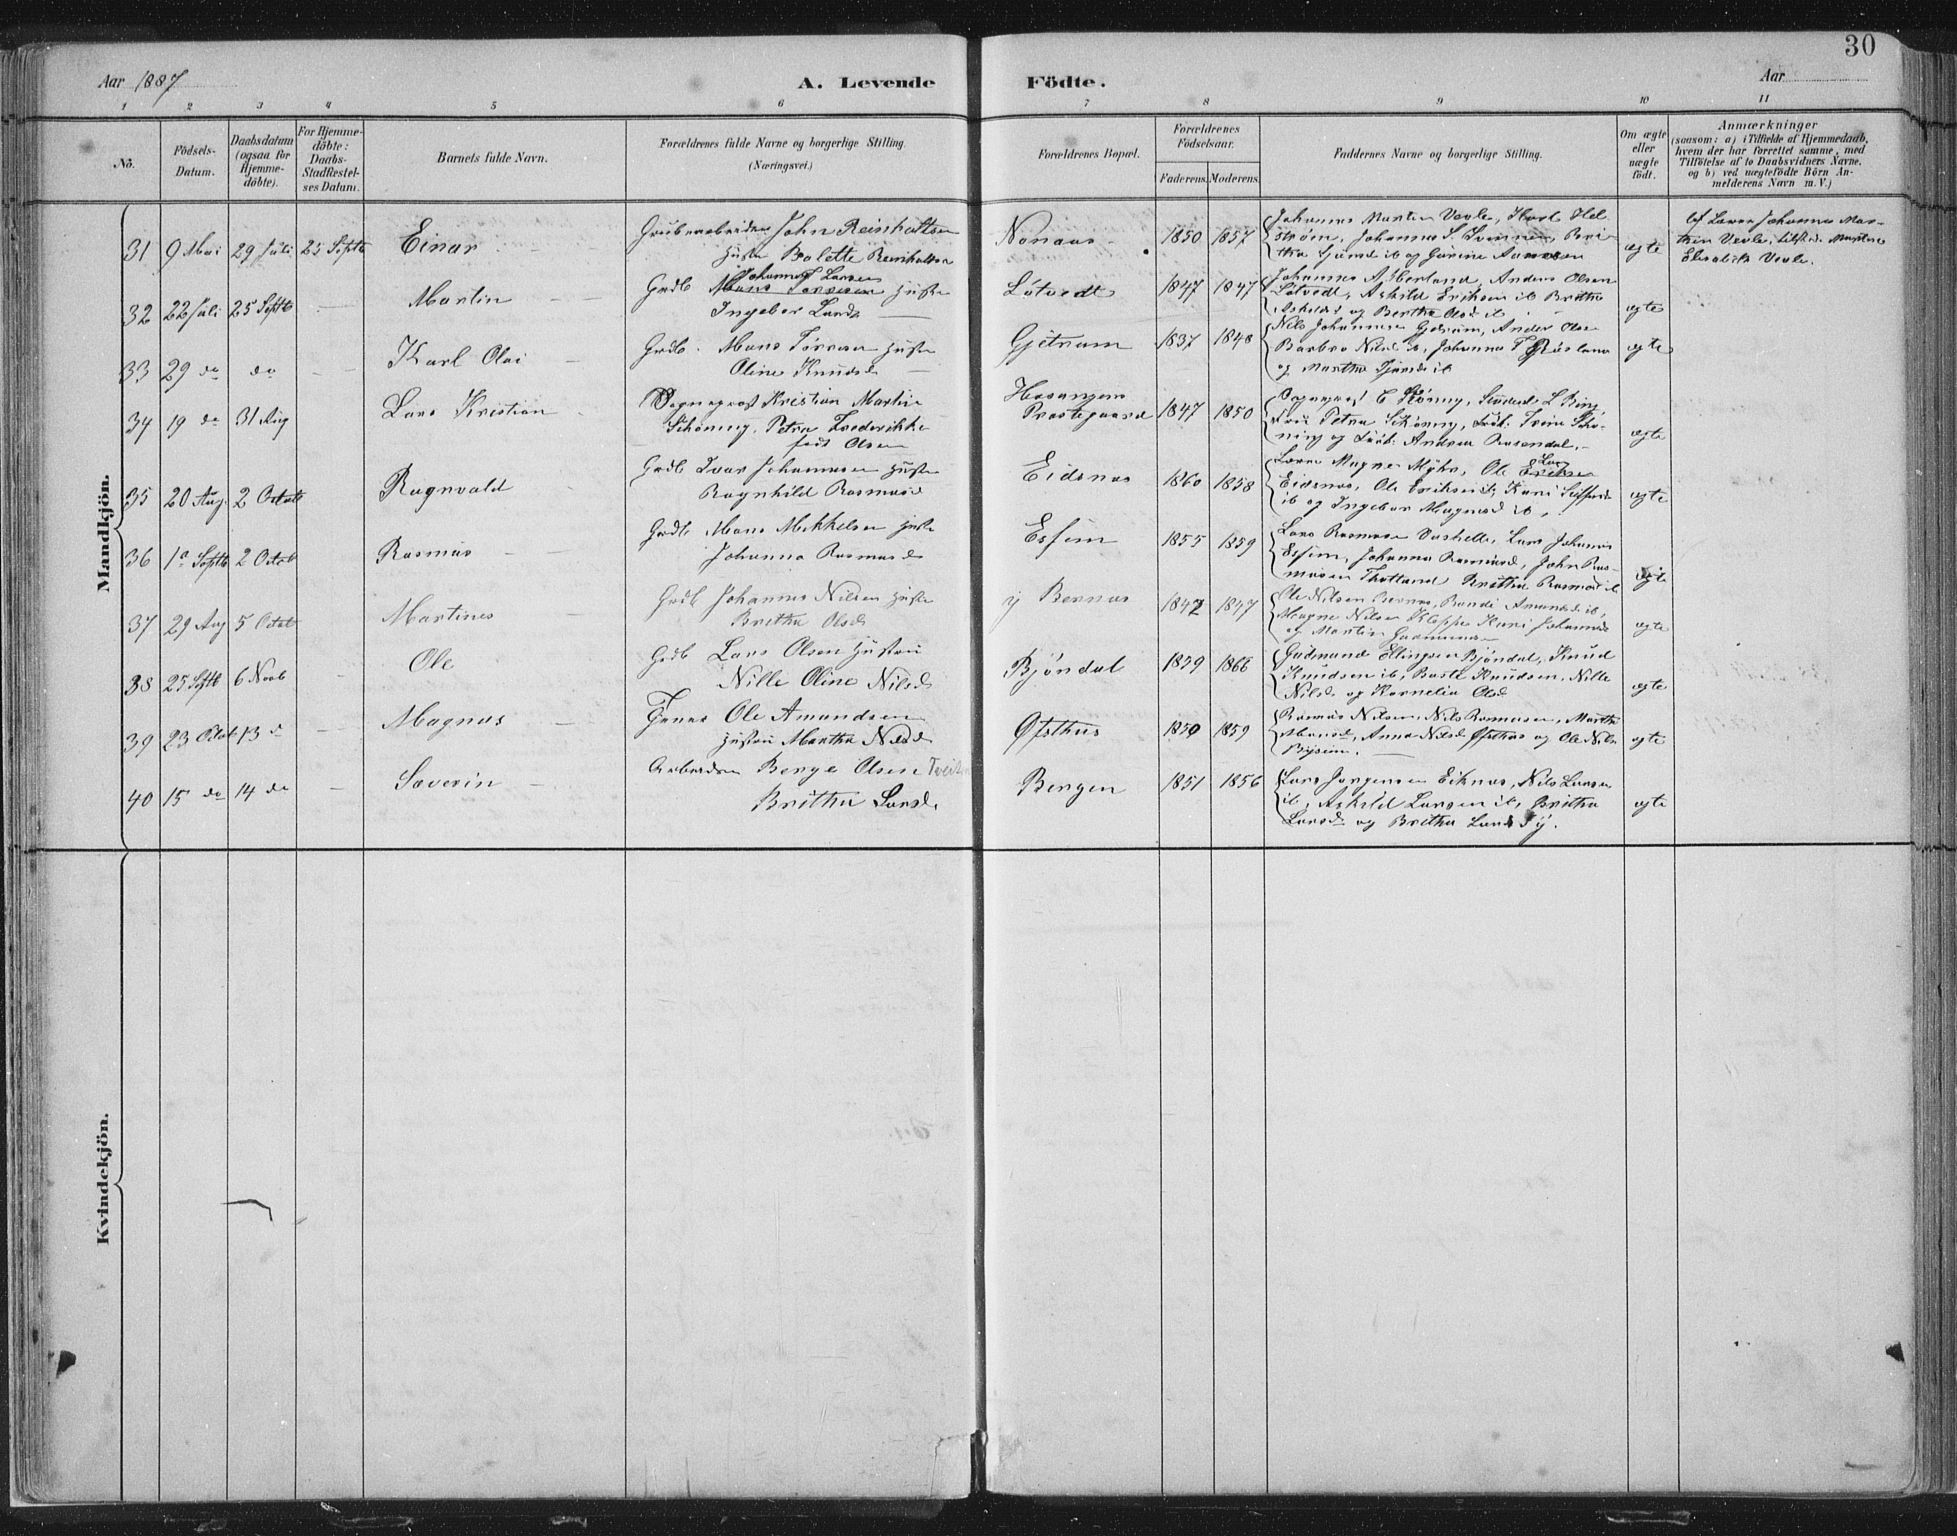 30
Aar 1887
A. Levende Födte.
Aar
1 2 3 4 5 6 7 8 9 10 11
No.
Födsels-
Datum.
Daabsdatum
(ogsaa for
Hjemme-
döbte).
For Hjemme-
döbte:
Daabs-
Stadfæstel-
ses Datum.
Barnets fulde Navn.
Forældrenes fulde Navne og borgerlige Stilling.
(Næringsvei.)
Forældrenes Bopæl.
Forældrenes
Födselsaar.
Faderens. Moderens.
Faddernes Navne og borgerlige Stilling.
Om ægte
eller
uægte
födt.
Anmærkninger
(saasom: a) i Tilfælde af Hjemmedaab,
hvem der har forrettet samme, med
Tilföielse af to Daabsvidners Navne.
og b) ved uægtefödte Börn An-
melderens Navn m. V.)
Mandkjön.
31 9 Mai 29 Juli 25 Septb Einar
Grubearbeider John Reinholtsen
Hustru Bolette Reinholtsen
Nonaas 1850 1857
Johannes Martin Vevle, Karl Hel-
strøm, Johannes
ægte
Af Lærer Johannes Mar-
tin Vevle, tilstede Martine
Elisabeth Vevle.
32 22 Juli 25 Septb Martin
Grdb Johannes Larsen Hustru
Ingebor Larsd
Lötvedt 1847 1847
Anders Olsen
Lötvedt, Askild Eriksen ib Britha
og Bertha Olsd ib
ægte
33 29 do do Karl Olai
Grdb. Mons Hustru
Oline Knudsd
Gjetram 1837 1848
Nils Johannesen Anders Olsen
Barbro Nilsd ib, Johannes
og Martha ib
ægte
34 19 do 31 Aug Lars Kristian
Sogneprest Kristian Martin
Schönning, Petra Frederikke
født Olsen
Hosangers
Prestegaard 1847 1850
Sogneprest C Student L Ring,
Fru Petra Schönning,
og Andrea Rosendal.
ægte
35 20 Aug 2 Octob Ragnvald
Grdb Ivar Johannesen Hustru
Ragnhild Rasmusd
Eidsnes 1860 1858
Lærer Magne Myhr, Ole
Eidsnes, Ole Eriksen ib, Kari
ib og Ingebor Magnusd ib.
ægte
36 1 Septb 2 Octob Rasmus
Grdb Mons Mikkelsen Hustru
Johanna Rasmusd
1855 1859
Lars Rasmusen Lars Johannes
Johanna Rasmusd, John Ras-
musen Britha Rasmusd ib
ægte
37 29 Aug 5 Octob Martines
Grdb Johannes Nilsen Hustru
Britha Olsd
y Bernes 1842 1847
Ole Nilsen Bernes, Amundsd ib,
Magne Nilsen Kleppe Kari Johannesd
og Martin
ægte
38 25 Septb 6 Novb Ole
Grdb Lars Olsen Hustru
Nille Oline Nilsd
Bjöndal 1839 1866
Gudmund Ellingsen Bjöndal, Knud
Knudsen ib, Knudsen, Nille
Nilsd og Kornelia Olsd
ægte
39 23 Octob 13 do Magnus
Ole Amundsen
Hustru Martha Nilsd
Øfsthus 1850 1859
Rasmus Nilsen, Nils Rasmusen, Martha
Anna Nilsd Øfsthus og Ole Nils
ægte
40 15 do 14 do Severin
Arbeider Berge Olsen Tveit
Britha Larsd
Bergen 1851 1856
Lars Jørgensen Eiknes, Nils Larsen
ib, Askild Larsen ib, Britha
Larsd og Britha Larsd
ægte
Kvindekjön.